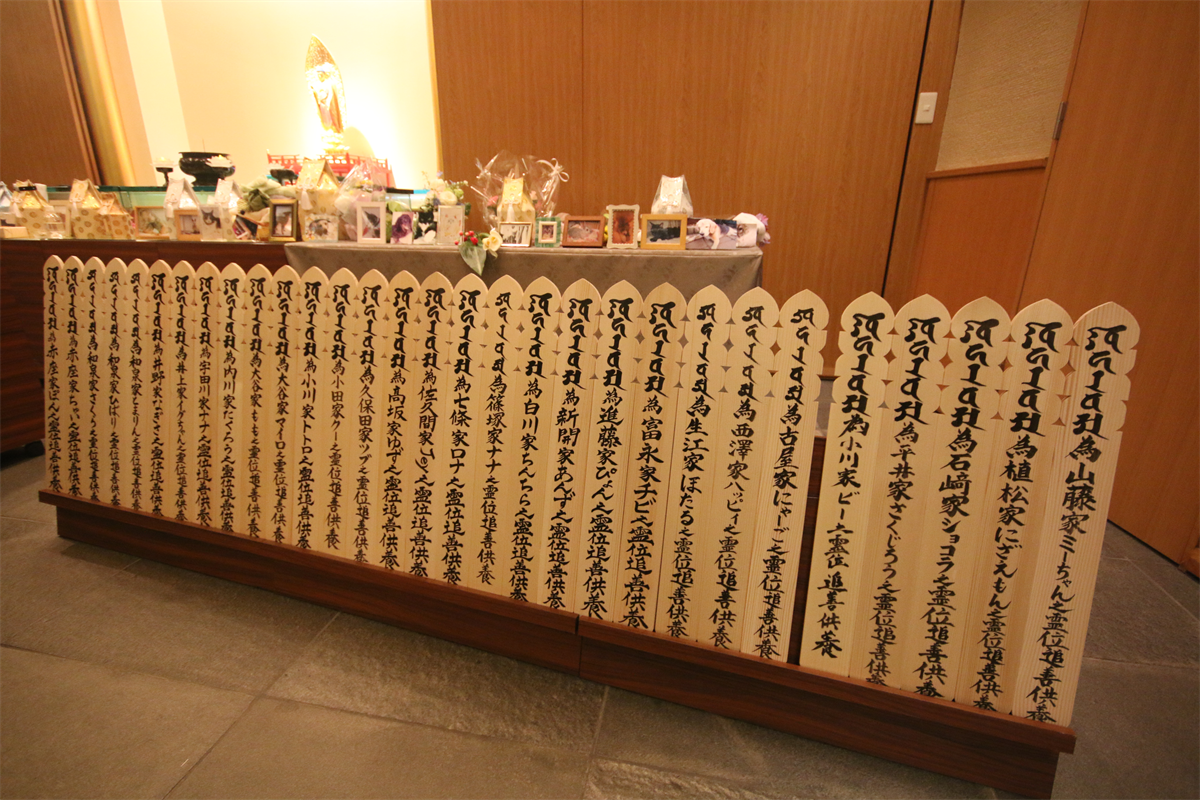 為山藤家ミーちゃん之霊位追善供養
為植松家にざえもん之霊位追善供養
為石﨑家ショコラ之霊位追善供養
為平井家さくじろう之霊位追善供養
為小川家ビー之霊位追善供養
為古屋家にゃーご之霊位追善供養
為西澤家ハッピィ之霊位追善供養
為生江家ほたる之霊位追善供養
為富永家チビ之霊位追善供養
為進藤家ぴょん之霊位追善供養
為新開家あんず之霊位追善供養
為白川家ちんちら之霊位追善供養
為篠塚家ナナ之霊位追善供養
為七條家ロナ之霊位追善供養
為佐久間家之霊位追善供養
為高坂家ゆず之霊位追善供養
為久保田家之霊位追善供養
為小田家クー之霊位追善供養
為小川家トトロ之霊位追善供養
為大谷家マイロ之霊位追善供養
為大谷家もも之霊位追善供養
為内川家たくろう之霊位追善供養
為宇田川家ナナ之霊位追善供養
為井上家イグちゃん之霊位追善供養
為井野家なぎさ之霊位追善供養
為和泉家之霊位追善供養
為和泉家ひばり之霊位追善供養
為和泉家さくら之霊位追善供養
為赤座家ちゃい之霊位追善供養
為赤座家ぽん之霊位追善供養